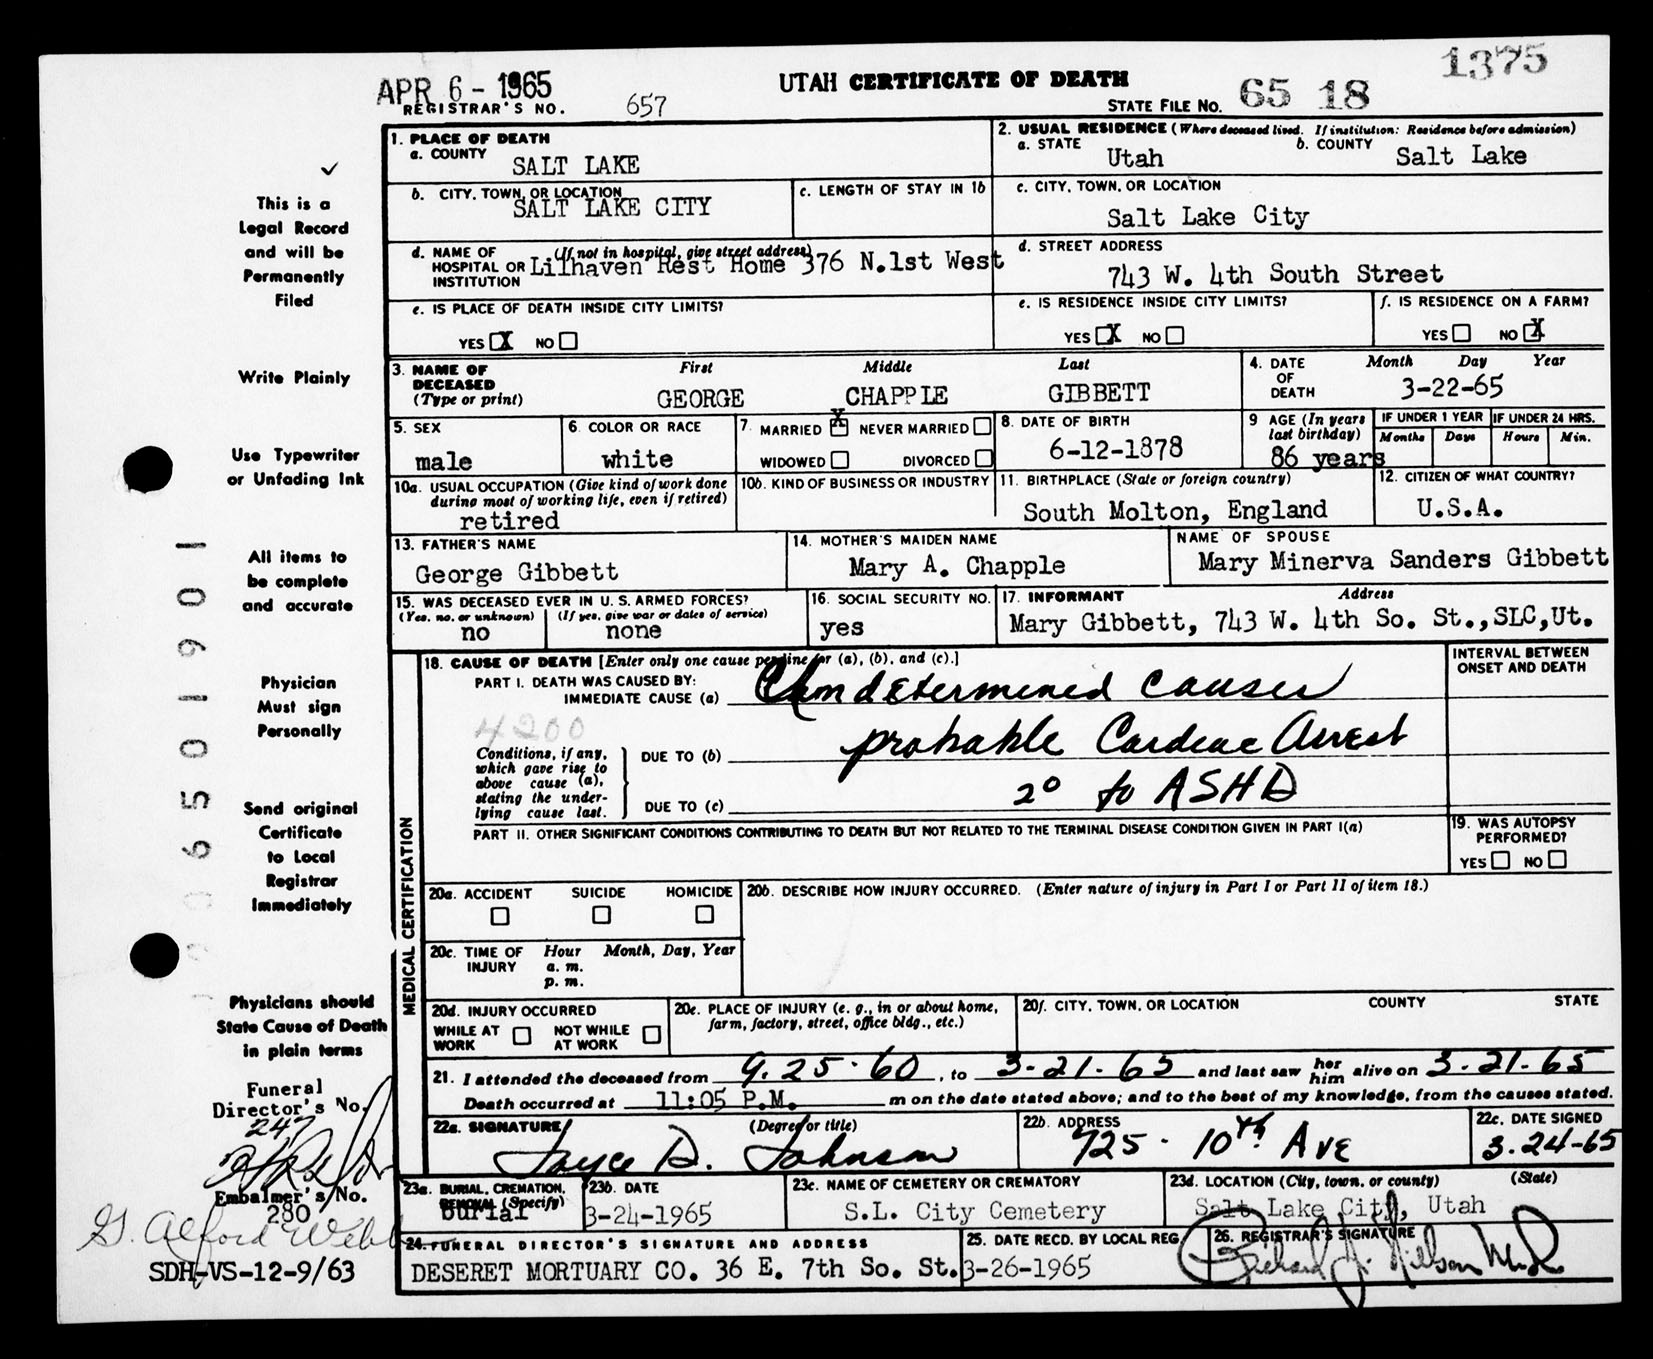 1375
APR 6 - 1965
UTAH CERTIFICATE OF DEATH
REGISTRAR'S NO. 657
STATE FILE NO. 65 18
This is a
Legal Record
and will be
Permanently
Filed
Write Plainly
Use Typewriter
or Unfading Ink
All items to
be complete
and accurate
Physician
Must sign
Personally
Send original
Certificate
to Local
Registrar
Immediately
Physicians should
State Cause of Death
in plain terms
Funeral
Director's No.
247
Embalmer's No.
280
G. Alford Webb
SDH-VS-12-9/63
1. PLACE OF DEATH
a. COUNTY SALT LAKE
2. USUAL RESIDENCE (Where deceased lived. If institution: Residence before admission)
a. STATE Utah b. COUNTY Salt Lake
b. CITY, TOWN, OR LOCATION SALT LAKE CITY
c. LENGTH OF STAY IN 1b
c. CITY, TOWN, OR LOCATION
Salt Lake City
d. NAME OF HOSPITAL OR INSTITUTION (If not in hospital, give street address)
Lilhaven Rest Home 376 N.1st West
d. STREET ADDRESS
743 W. 4th South Street
e. IS PLACE OF DEATH INSIDE CITY LIMITS?
YES X NO
e. IS RESIDENCE INSIDE CITY LIMITS?
YES X NO
f. IS RESIDENCE ON A FARM?
YES NO X
3. NAME OF DECEASED (Type or print)
First Middle Last
GEORGE CHAPPLE GIBBETT
4. DATE OF DEATH Month Day Year
3-22-65
5. SEX
male
6. COLOR OR RACE
white
7. MARRIED X NEVER MARRIED
WIDOWED DIVORCED
8. DATE OF BIRTH
6-12-1878
9 AGE (In years last birthday)
86 years
IF UNDER 1 YEAR
Months Days
IF UNDER 24 HRS.
Hours Min.
10a. USUAL OCCUPATION (Give kind of work done during most of working life, even if retired)
retired
10b. KIND OF BUSINESS OR INDUSTRY
11. BIRTHPLACE (State or foreign country)
South Molton, England
12. CITIZEN OF WHAT COUNTRY?
U.S.A.
13. FATHER'S NAME
George Gibbett
14. MOTHER'S MAIDEN NAME
Mary A. Chapple
NAME OF SPOUSE
Mary Minerva Sanders Gibbett
15. WAS DECEASED EVER IN U. S. ARMED FORCES?
(Yes, no, or unknown) (If yes, give war or dates of service)
no none
16. SOCIAL SECURITY NO.
yes
17. INFORMANT Address
Mary Gibbett, 743 W. 4th So. St.,SLC,Ut.
MEDICAL CERTIFICATION
18. CAUSE OF DEATH [Enter only one cause per line for (a), (b), and (c).]
INTERVAL BETWEEN ONSET AND DEATH
PART I. DEATH WAS CAUSED BY:
IMMEDIATE CAUSE (a) Undetermined causes
4200
Conditions, if any, which gave rise to above cause (a), stating the underlying cause last.
DUE TO (b) probable Cardiac Arrest
DUE TO (c) 2° to ASHD
PART II. OTHER SIGNIFICANT CONDITIONS CONTRIBUTING TO DEATH BUT NOT RELATED TO THE TERMINAL DISEASE CONDITION GIVEN IN PART I(a)
19. WAS AUTOPSY PERFORMED?
YES NO
20a. ACCIDENT SUICIDE HOMICIDE
20b. DESCRIBE HOW INJURY OCCURRED. (Enter nature of injury in Part I or Part II of item 18.)
20c. TIME OF INJURY Hour Month, Day, Year
a. m.
p. m.
20d. INJURY OCCURRED
WHILE AT WORK NOT WHILE AT WORK
20e. PLACE OF INJURY (e. g., in or about home, farm, factory, street, office bldg., etc.)
20f. CITY, TOWN, OR LOCATION COUNTY STATE
21. I attended the deceased from 9.25.60, to 3-21.65 and last saw her him alive on 3.21.65
Death occurred at 11:05 P.M. m on the date stated above; and to the best of my knowledge, from the causes stated.
22a. SIGNATURE (Degree or title)
Joyce D. Johnson
22b. ADDRESS
725 - 10th Ave
22c. DATE SIGNED
3.24-65
23a. BURIAL, CREMATION, REMOVAL (Specify)
burial
23b. DATE
3-24-1965
23c. NAME OF CEMETERY OR CREMATORY
S.L. City Cemetery
23d. LOCATION (City, town, or county) (State)
Salt Lake City, Utah
24. FUNERAL DIRECTOR'S SIGNATURE AND ADDRESS
DESERET MORTUARY CO. 36 E. 7th So. St.
25. DATE RECD. BY LOCAL REG.
3-26-1965
26. REGISTRAR'S SIGNATURE
Richard J. Nilson